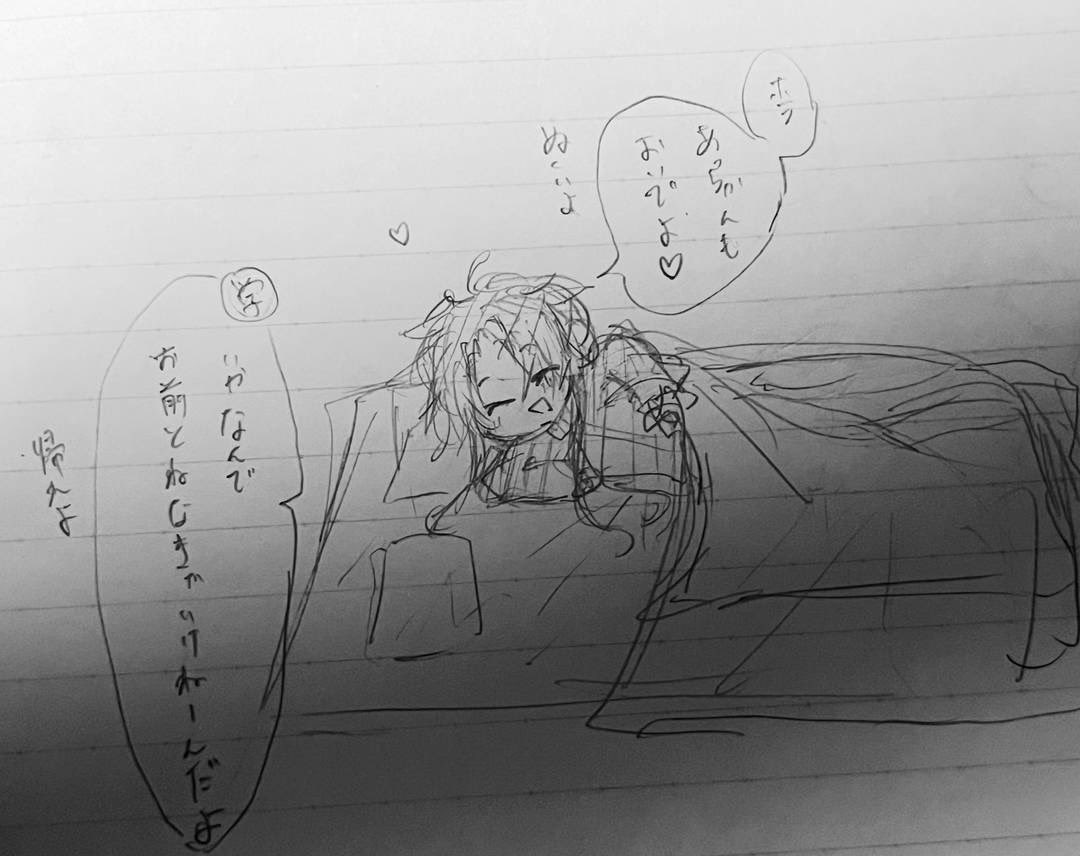 ホラ
あらかんも
おいでよ♡
ぬくいよ
学
いやなんで
お前とねなきゃいけねーんだよ
帰れよ